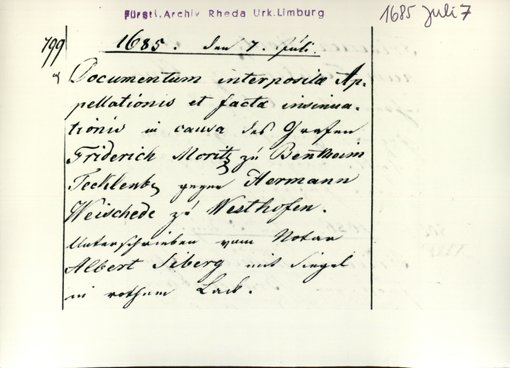 Fürstl. Archiv Rheda Urk. Limburg
1685 Juli 7
799
1685. den 7. Juli.
Documentum interpositae Ap-
pellationis et factae insinua-
tionis in causa des Grafen
Friderich Moritz zu Bentheim
Tecklenb. gegen Hermann
Weischede zu Westhofen.
Unterschrieben vom Notar
Albert Seberg mit Siegel
in rothem Lack.